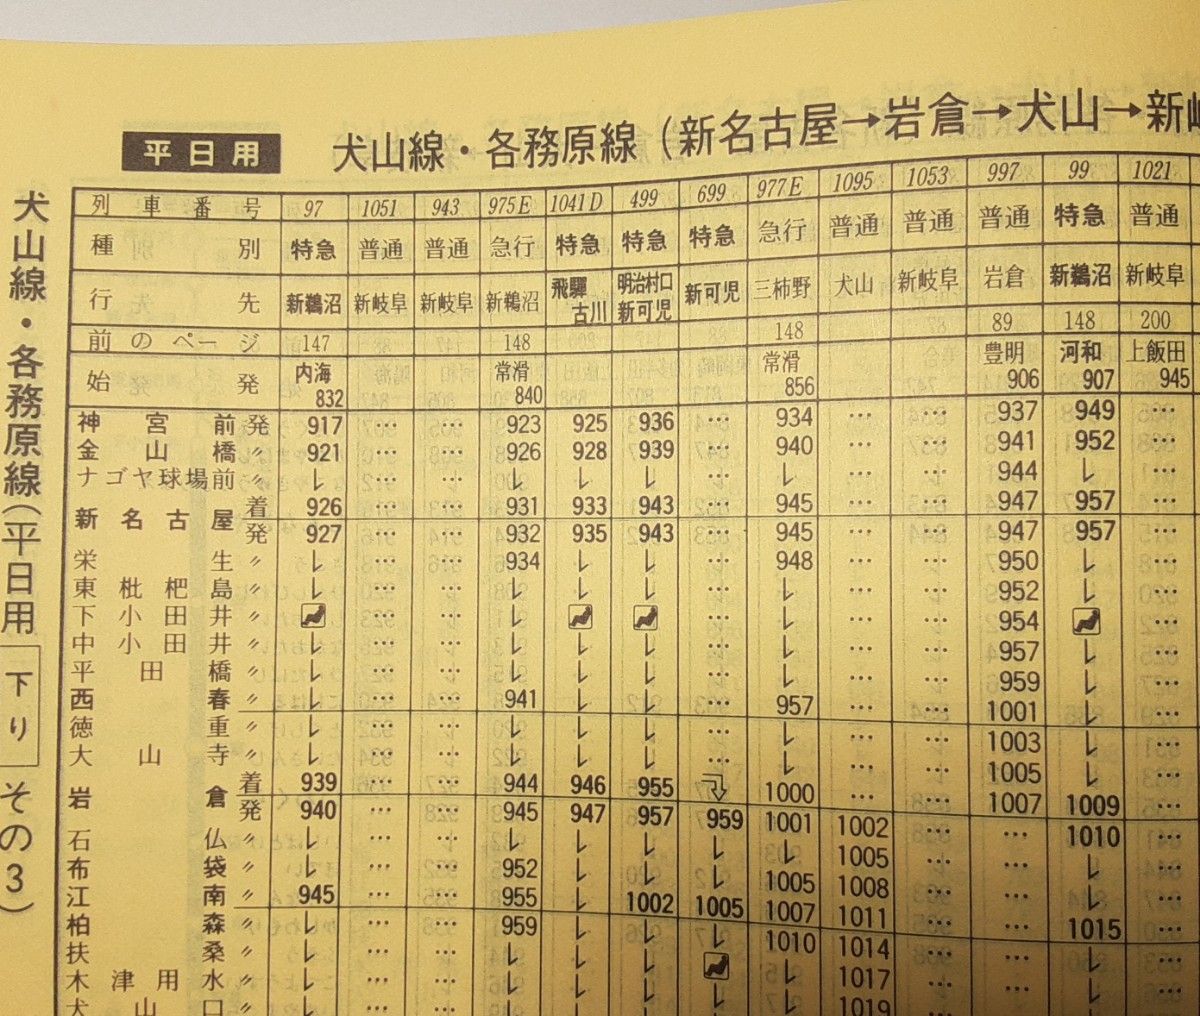 平日用 犬山線・各務原線(新名古屋→岩倉→犬山→新岐
犬山線・各務原線(平日用 下り その3)
列車番号 97 1051 943 975E 1041D 499 699 977E 1095 1053 997 99 1021
種別 特急 普通 普通 急行 特急 特急 特急 急行 普通 普通 普通 特急 普通
行先 新鵜沼 新岐阜 新岐阜 新鵜沼 飛騨古川 明治村口新可児 新可児 三柿野 犬山 新岐阜 岩倉 新鵜沼 新岐阜
前のページ 147 148 148 89 148 200
始発 内海 832 常滑 840 常滑 856 豊明 906 河和 907 上飯田 945
神宮前発 917 … … 923 925 936 … 934 … … 937 949 …
金山橋〃 921 … … 926 928 939 … 940 … … 941 952 …
ナゴヤ球場前〃 レ … … レ レ レ … レ … … 944 レ …
新名古屋着 926 … … 931 933 943 … 945 … … 947 957 …
発 927 … … 932 935 943 … 945 … … 947 957 …
栄生〃 レ … … 934 レ レ … 948 … … 950 レ …
東枇杷島〃 レ … … レ レ レ … レ … … 952 レ …
下小田井〃 … … レ … レ … … 954 …
中小田井〃 レ … … レ レ レ … レ … … 957 レ …
平田橋〃 レ … … レ レ レ … レ … … 959 レ …
西春〃 レ … … 941 レ レ … 957 … … 1001 レ …
徳重〃 レ … … レ レ レ … レ … … 1003 レ …
大山寺〃 レ … … レ レ レ … レ … … 1005 レ …
岩倉着 939 … … 944 946 955 1000 … … 1007 1009 …
発 940 … … 945 947 957 959 1001 1002 … … 1010 …
石仏〃 レ … … レ レ レ レ レ 1005 … … レ …
布袋〃 レ … … 952 レ レ レ 1005 1008 … … レ …
江南〃 945 … … 955 レ 1002 1005 1007 1011 … … 1015 …
柏森〃 レ … … 959 レ レ レ 1010 1014 … … レ …
扶桑〃 レ … … レ レ レ レ 1017 … … レ …
木津用水〃 レ … … レ レ レ レ レ 1019 … … レ …
犬山口〃